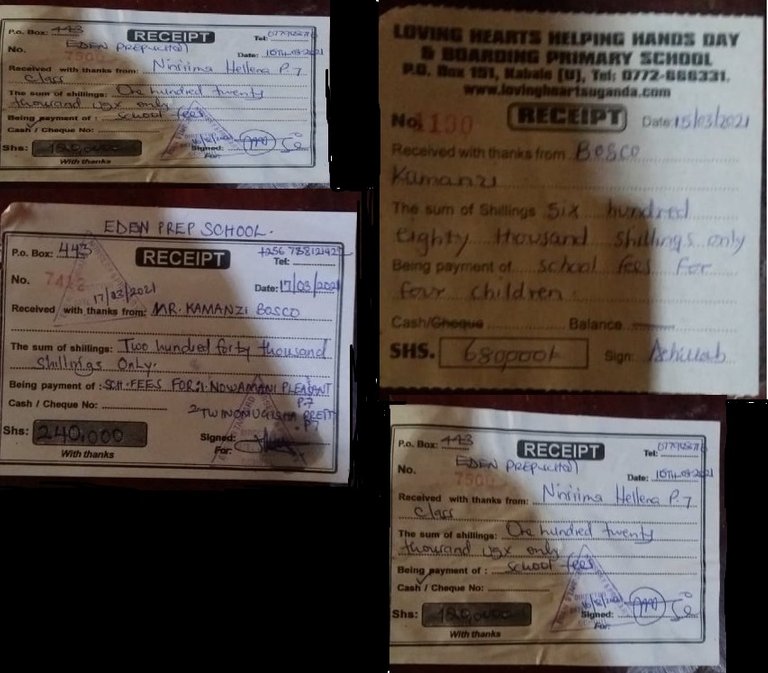 P.o. Box: 443 RECEIPT Tel:
EDEN PREP
No. 7500 Date:
Received with thanks from: Ninsiima Hellena P.7
class
The sum of shillings: One hundred twenty
thousand ugx only
Being payment of: school fees
Cash / Cheque No:
Shs: 120,000 Signed:
For:
With thanks
LOVING HEARTS HELPING HANDS DAY
& BOARDING PRIMARY SCHOOL
P.O. Box 151, Kabale [U], Tel: 0772-666331.
www.lovingheartsuganda.com
No. 1130 RECEIPT Date 15/03/2021
Received with thanks from Bosco
Kamanzi
The sum of Shillings six hundred
eighty thousand shillings only
Being payment of school fees for
four children
Cash/Cheque Balance
SHS. 680,000/= Sign:
EDEN PREP SCHOOL.
P.o. Box: 443 RECEIPT +256 788121427 Tel:
No. Date: 17/03/2021
17/03/2021
Received with thanks from: MR. KAMANZI BOSCO
The sum of shillings: Two hundred forty thousand
shillings only.
Being payment of: SCH. FEES FOR: 1. NOWAMANI PLEASANT
P.7
Cash / Cheque No: 2 TWINOMUGISHA
P.7
Shs: 240,000 Signed:
For:
With thanks
P.o. Box: 443 RECEIPT Tel:
EDEN PREP
No. 7500 Date:
Received with thanks from: Ninsiima Hellena P.7
class
The sum of shillings: One hundred twenty
thousand ugx only
Being payment of: school fees
Cash / Cheque No:
Shs: 120,000 Signed:
For:
With thanks